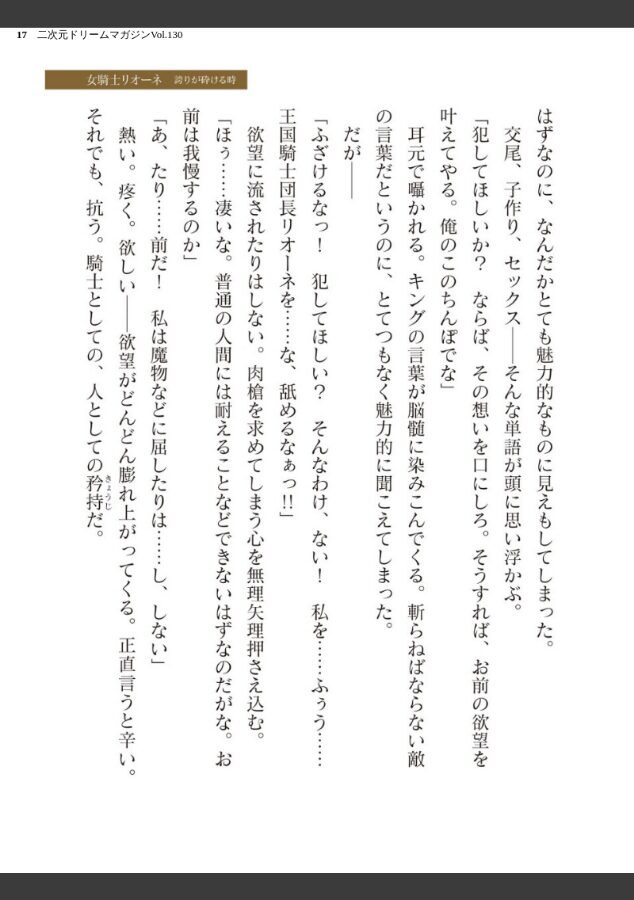 17 二次元ドリームマガジンVol.130
女騎士リオーネ 誇りが砕ける時
はずなのに、なんだかとても魅力的なものに見えもしてしまった。
交尾、子作り、セックス――そんな単語が頭に思い浮かぶ。
「犯してほしいか? ならば、その想いを口にしろ。そうすれば、お前の欲望を
叶えてやる。俺のこのちんぽでな」
耳元で囁かれる。キングの言葉が脳髄に染みこんでくる。斬らねばならない敵
の言葉だというのに、とてつもなく魅力的に聞こえてしまった。
だが――
「ふざけるなっ! 犯してほしい? そんなわけ、ない! 私を……ふぅう……
王国騎士団長リオーネを……な、舐めるなぁっ!!」
欲望に流されたりはしない。肉槍を求めてしまう心を無理矢理押さえ込む。
「ほぅ……凄いな。普通の人間には耐えることなどできないはずなのだがな。お
前は我慢するのか」
「あ、たり……前だ! 私は魔物などに屈したりは……し、しない」
熱い。疼く。欲しい――欲望がどんどん膨れ上がってくる。正直言うと辛い。
それでも、抗う。騎士としての、人としての矜持きょうじだ。